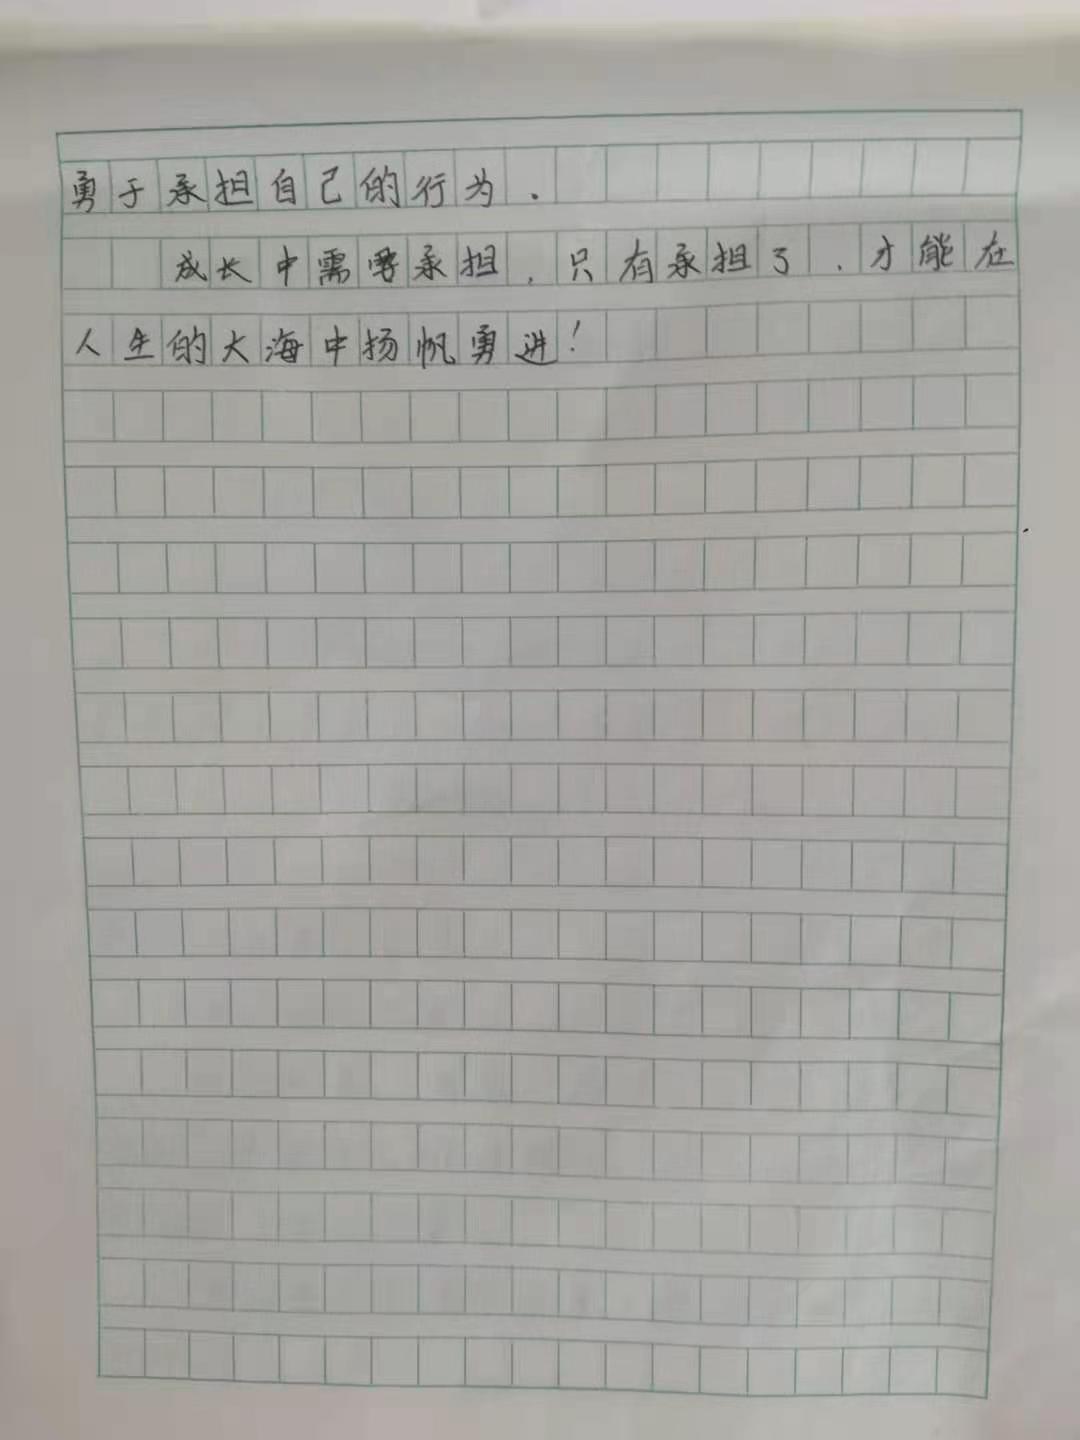 勇于承担自己的行为.
成长中需要承担,只有承担了,才能在
人生的大海中扬帆勇进!